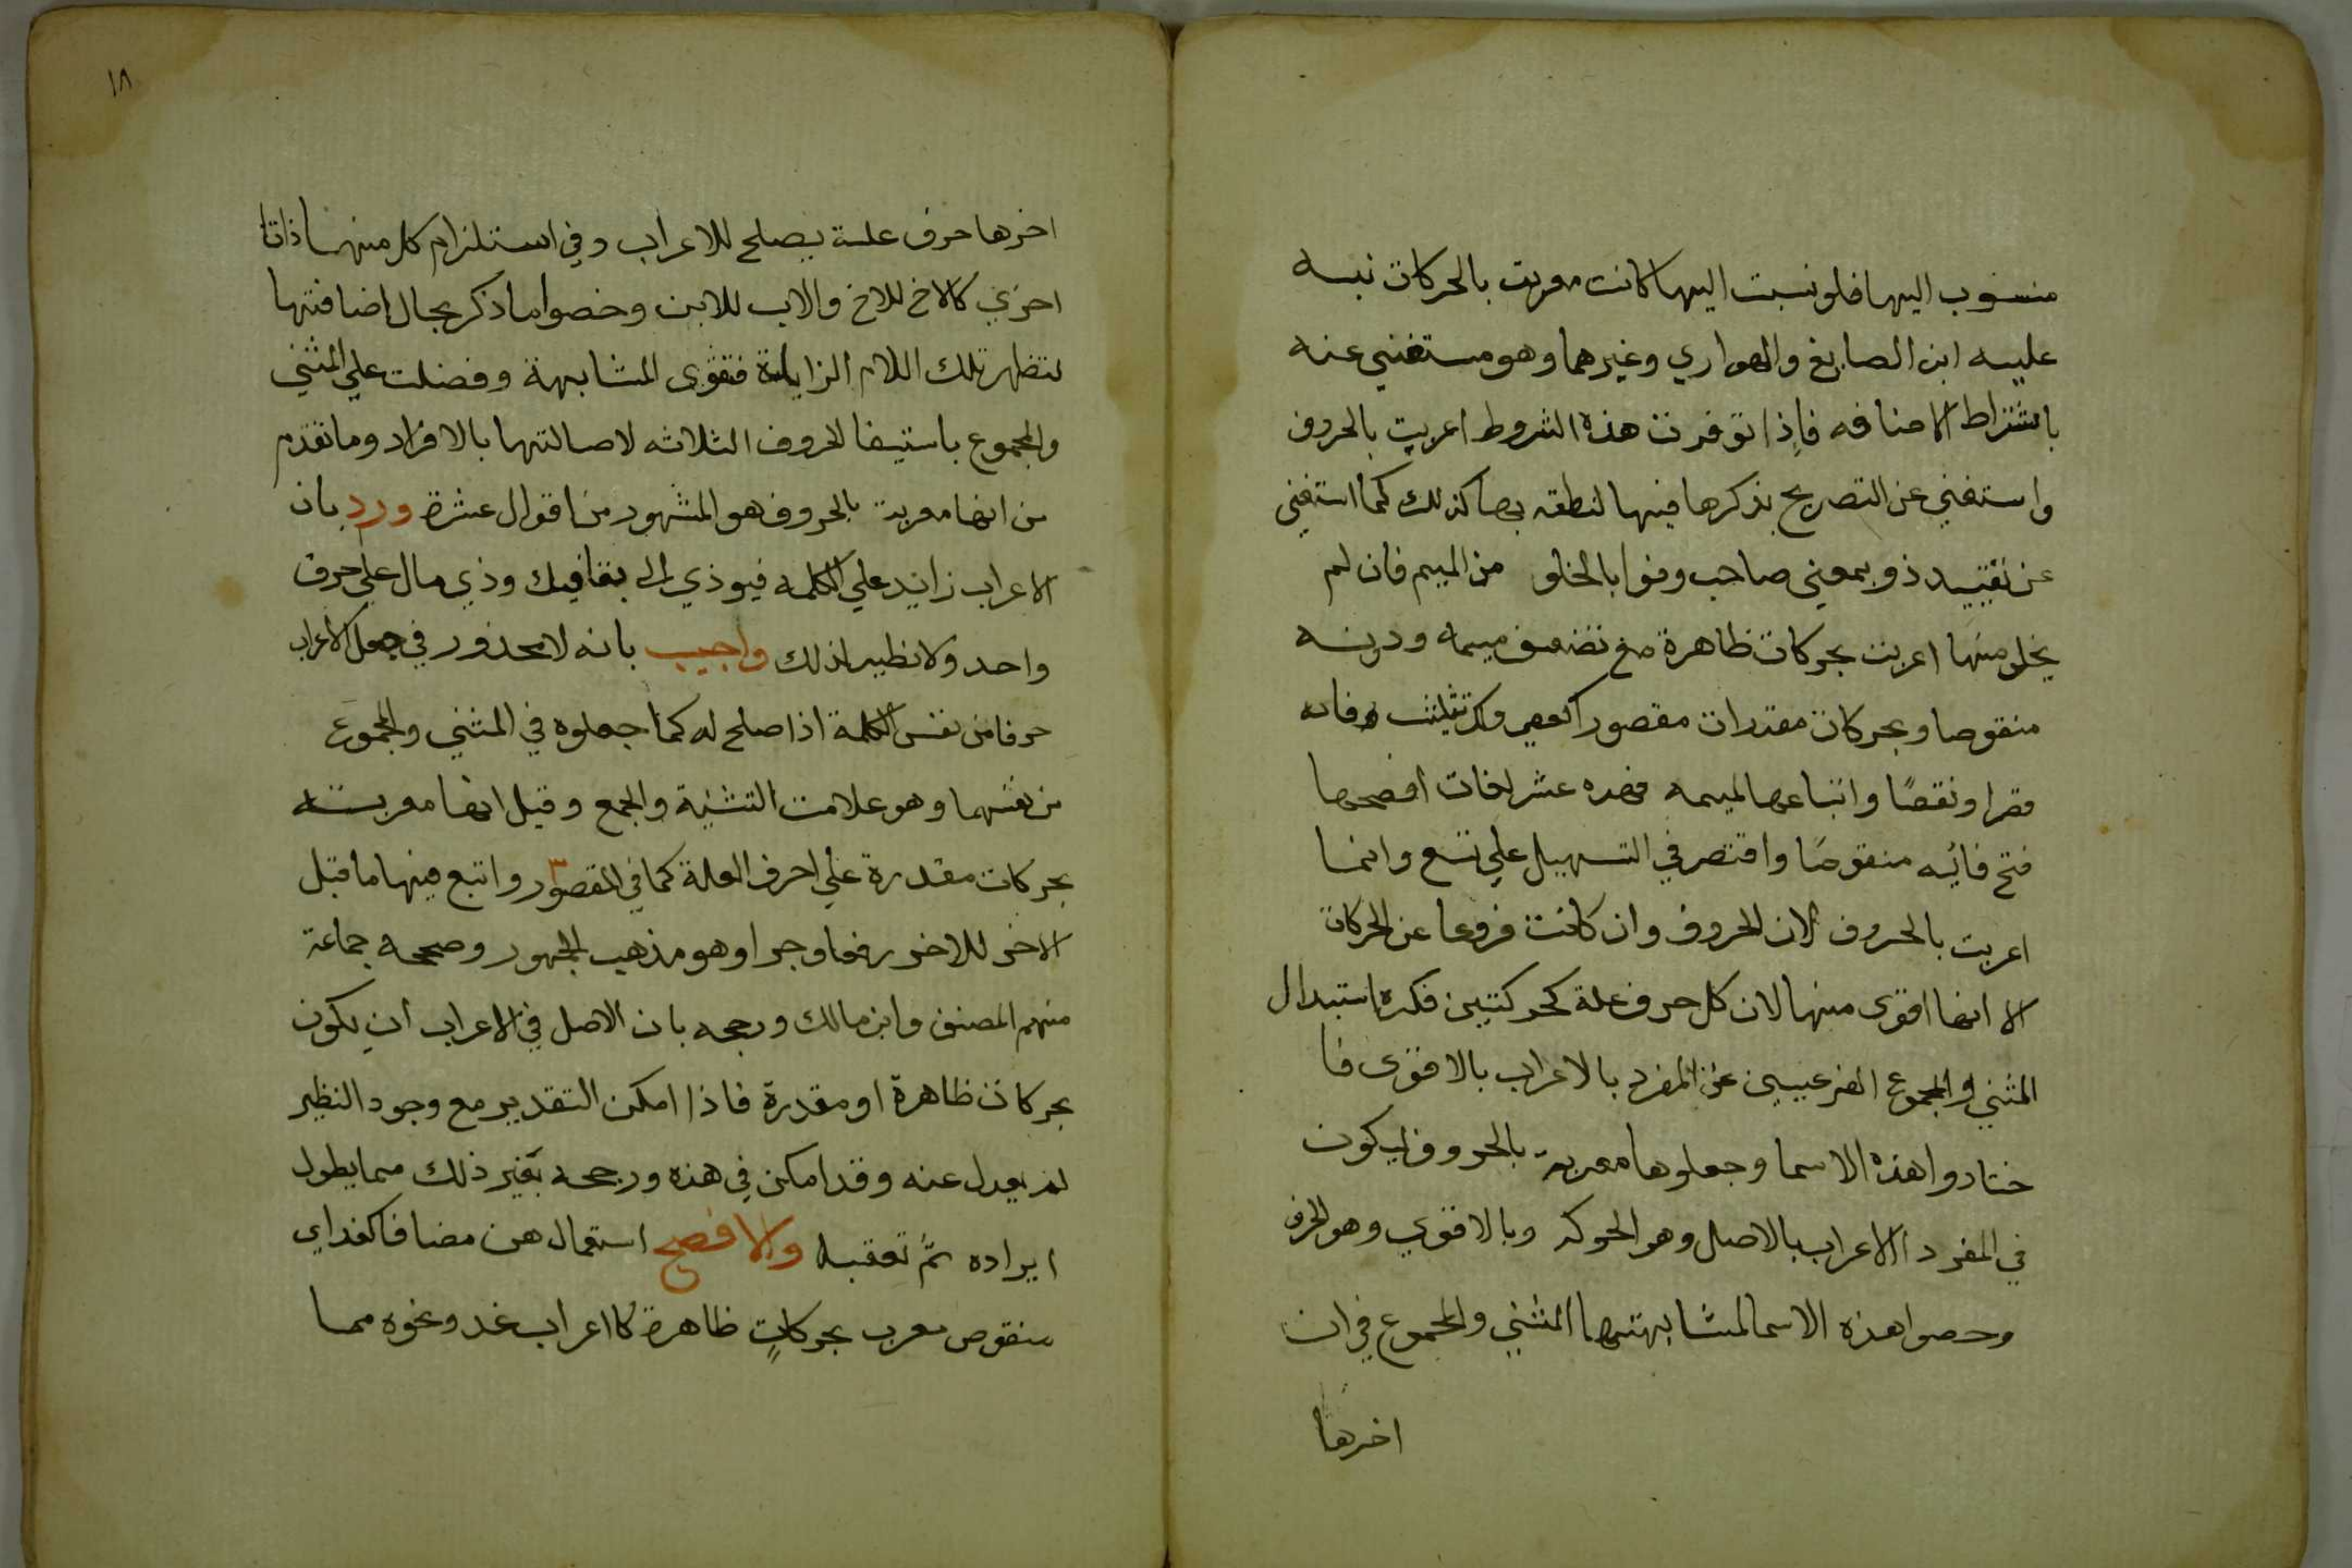 منسوب اليها فلو نسبت اليها كانت معربة بالحركات نبه
عليه ابن الصايغ والهواري وغيرهما وهو مستغني عنه
باشتراط الاضافه فاذا توفرت هذه الشروط اعربت بالحروف
واستغني عن التصريح بذكرها فيها لنطقه بها كذلك كما استغني
عن تقييد ذو بمعني صاحب وفوا بالخلو من الميم فان لم
يخل منها اعربت بحركات ظاهرة مع تضعيف ميمه ودونه
منقوصا وبحركات مقدرات مقصورا كعصي وكل تثليث فائه
قصرا ونقصًا واتباعها لميمه فهذه عشر لغات افصحها
فتح فائه منقوصًا واقتصر في التسهيل علي تسع وانما
اعربت بالحروف لان الحروف وان كانت فروعا عن الحركات
الا انها اقوى منها لان كل حرف علة كحركتين فكره استبدال
المثني والمجموع الفرعيين عن المفرد بالاعراب بالاقوى فا
ختاروا هذه الاسما وجعلوها معربة بالحروف ليكون
في المفرد الاعراب بالاصل وهو الحركه وبالاقوي وهو الحرف
وخصوا هذه الاسما لمشابهتها المثني والمجموع في ان
اخرها
١٨
اخرها حرف علة يصلح للاعراب وفي استلزام كل منهما ذاتا
اخري كالاخ للاخ والاب للابن وخصوا ما ذكر بحال اضافتها
لتظهر تلك اللام الزايدة فتقوى المشابهة وفضلت علي المثني
والمجموع باستيفا الحروف الثلاثه لاصالتها بالافراد وما تقدم
من انها معربة بالحروف هو المشهور من اقوال عشرة ورد بان
الاعراب زايد علي الكلمه فيوذي الى بقا فيك وذي مال علي حرف
واحد ولا نظير لذلك واجيب بانه لا محذور في جعل الاعراب
حرفا من نفس الكلمة اذا صلح له كما جعلوه في المثني والمجموع
من نفسهما وهو علامت التثنية والجمع وقيل انها معربة
بحركات مقدرة علي احرف العلة كما في المقصور واتبع فيها ما قبل
الاخر للاخر رفعا وجرا وهو مذهب الجمهور وصححه جماعة
منهم المصنف وابن مالك ورجحه بان الاصل في الاعراب ان يكون
بحركات ظاهرة او مقدرة فاذا امكن التقدير مع وجود النظير
لم يعدل عنه وقد امكن في هذه ورجحه بغير ذلك مما يطول
ايراده ثم تعقبه والافصح استعمال هن مضافا كغداي
منقوص معرب بحركاتٍ ظاهرة كاعراب غد ونحوه مما